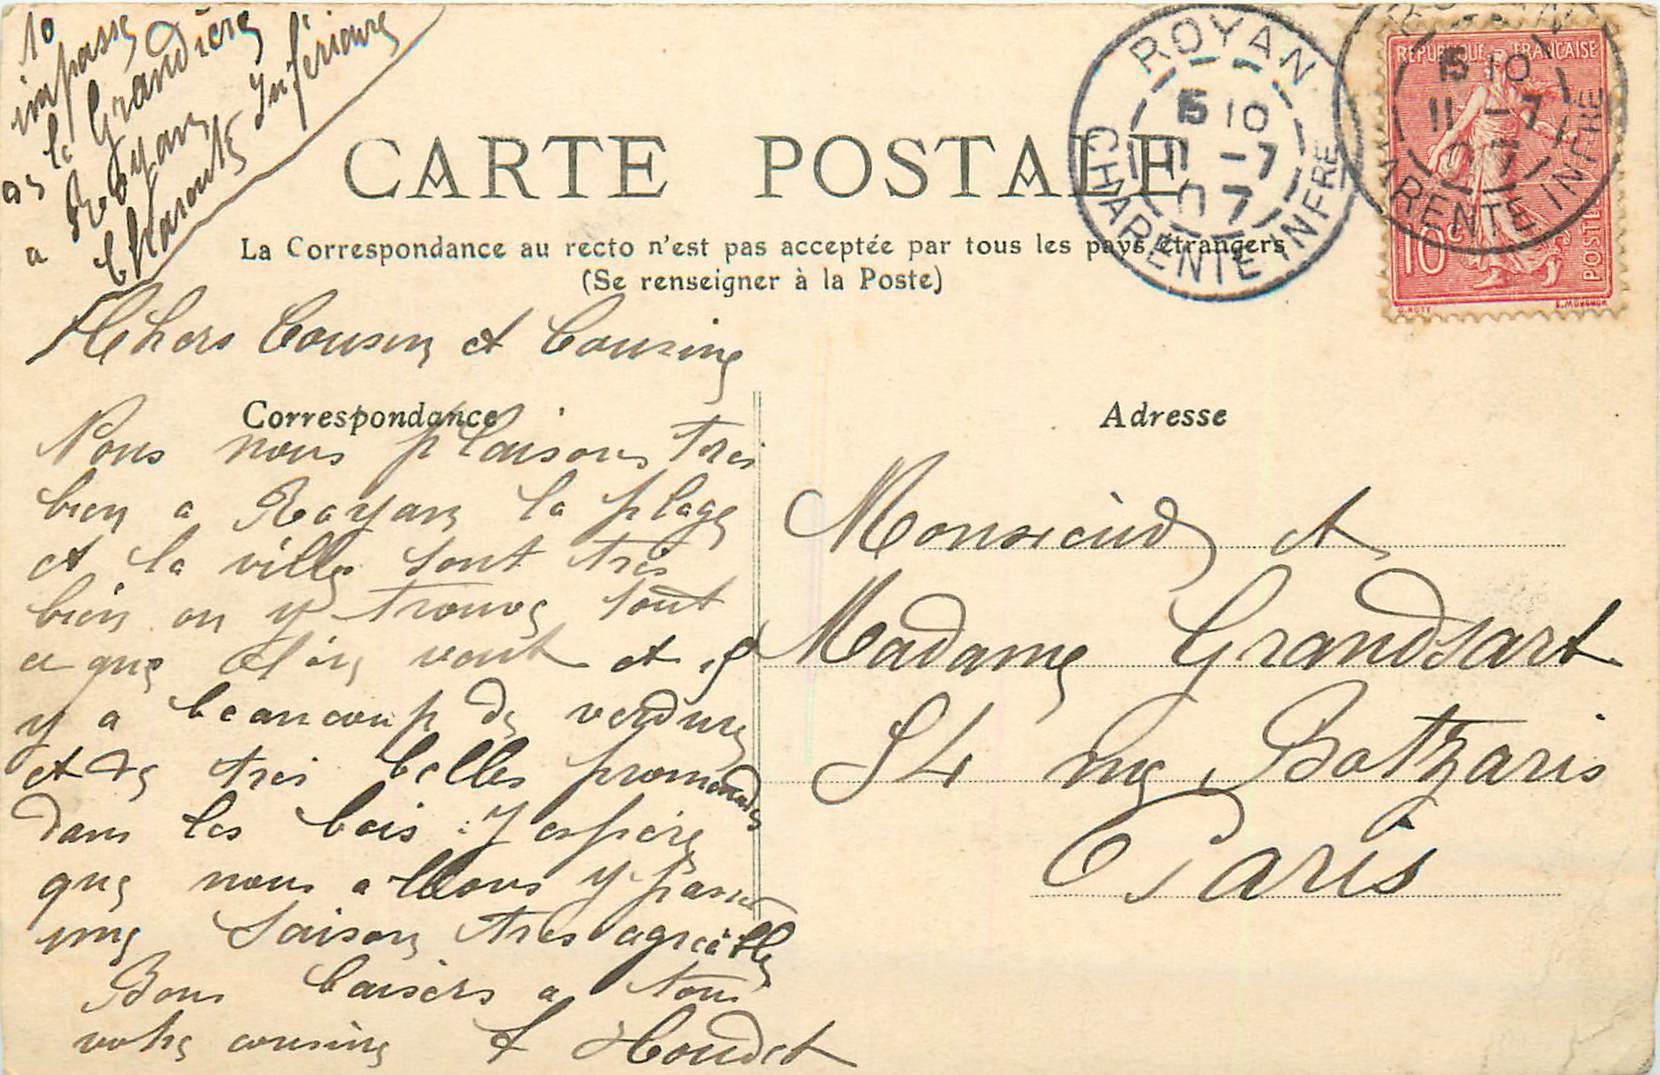 10
impasse
de la Grandière
a Royan
Charente Inférieure
CARTE POSTALE
La Correspondance au recto n'est pas acceptée par tous les pays étrangers
(Se renseigner à la Poste)
ROYAN
15 10
11 -7
07
CHARENTE INFRE
REPUBLIQUE FRANÇAISE
15 10
11 -7
07
ARENTE INFRE
10c
POSTES
O. ROTY
E. MOUCHON
Chers Cousin et Cousine
Correspondance
Nous nous plaisons tres
bien a Royan la plage
et la ville sont tres
bien on y trouve tout
ce que l'on veut et il
y a beaucoup de verdure
et de tres belles promenades
dans les bois. J espère
que nous allons y passer
une saison tres agréable
Bons baisers a tous
votre cousine
Houdet
Adresse
Monsieur et
Madame Grandsart
54 rue Botzaris
Paris